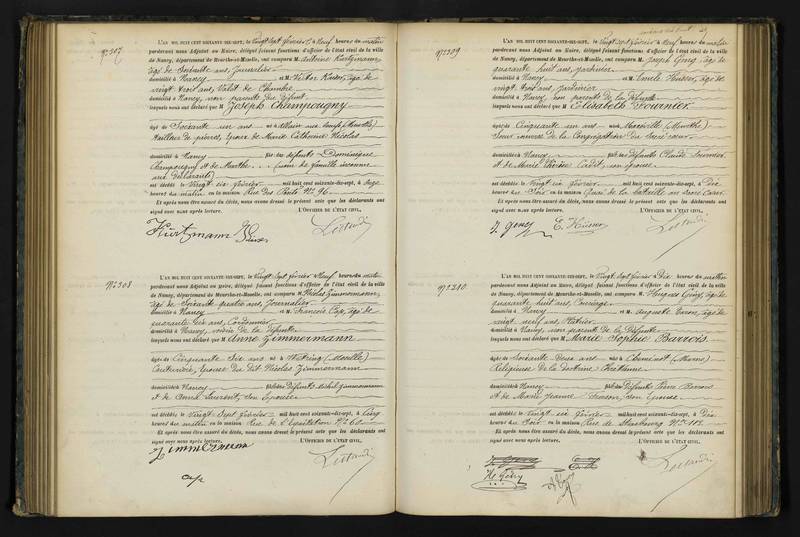 N° 307
L'AN MIL HUIT CENT SOIXANTE-DIX-SEPT, le Vingt Sept février à Neuf heures du matin
pardevant nous Adjoint au Maire, délégué faisant fonctions d'officier de l'état civil de la ville
de Nancy, département de Meurthe-et-Moselle, ont comparu M. Antoine Kurtzmann,
âgé de Soixante ans, Journalier
domicilié à Nancy et M. Victor Kieser, âgé de
vingt trois ans, Valet de Chambre
domicilié à Nancy, non parents du défunt
lesquels nous ont déclaré que M Joseph Champougny
âgé de Soixante un ans né à Allain aux bœufs (Meurthe)
tailleur de pierres, époux de Marie Catherine Nicolas
domicilié à Nancy fils des défunts Dominique
Champougny et de Marthe (nom de famille inconnu
aux déclarants)
est décédé le Vingt six février mil huit cent soixante-dix-sept, à Onze
heures du matin en la maison Rue des Ponts N° 96
Et après nous être assuré du décès, nous avons dressé le présent acte que les déclarants ont
signé avec nous après lecture. L'OFFICIER DE L'ÉTAT CIVIL,
Kurtzmann
N° 308
L'AN MIL HUIT CENT SOIXANTE-DIX-SEPT, le Vingt Sept février à Neuf heures du matin
pardevant nous Adjoint au Maire, délégué faisant fonctions d'officier de l'état civil de la ville
de Nancy, département de Meurthe-et-Moselle, ont comparu M. Nicolas Zimmermann,
âgé de Soixante quatre ans, Journalier
domicilié à Nancy et M. François Cap, âgé de
quarante six ans, Cordonnier
domicilié à Nancy, voisin de la défunte
lesquels nous ont déclaré que M Anne Zimmermann
âgée de Cinquante Six ans née à (Moselle)
Couturière, épouse du dit Nicolas Zimmermann
domiciliée à Nancy fille des défunts Michel Zimmermann
et de son épouse
est décédée le Vingt Sept février mil huit cent soixante-dix-sept, à Cinq
heures du matin en la maison Rue de l'Equitation N° 60
Et après nous être assuré du décès, nous avons dressé le présent acte que les déclarants ont
signé avec nous après lecture. L'OFFICIER DE L'ÉTAT CIVIL,
Zimmermann
Cap
N° 309
L'AN MIL HUIT CENT SOIXANTE-DIX-SEPT, le Vingt Sept février à Neuf heures du matin
pardevant nous Adjoint au Maire, délégué faisant fonctions d'officier de l'état civil de la ville
de Nancy, département de Meurthe-et-Moselle, ont comparu M. Joseph âgé de
quarante huit ans, Jardinier
domicilié à Nancy et M. Emile âgé de
vingt trois ans, Jardinier
domicilié à Nancy, non parents de la défunte
lesquels nous ont déclaré que M Elisabeth Fournier
âgée de Cinquante un ans née à (Meurthe)
Sœur converse de la Congrégation du Sacré cœur
domiciliée à Nancy fille des défunts Claude Fournier
et de Marie Thérèse son épouse
est décédée le Vingt six février mil huit cent soixante-dix-sept, à Dix
heures du Soir en la maison
Et après nous être assuré du décès, nous avons dressé le présent acte que les déclarants ont
signé avec nous après lecture. L'OFFICIER DE L'ÉTAT CIVIL,
N° 310
L'AN MIL HUIT CENT SOIXANTE-DIX-SEPT, le Vingt Sept février à Dix heures du matin
pardevant nous Adjoint au Maire, délégué faisant fonctions d'officier de l'état civil de la ville
de Nancy, département de Meurthe-et-Moselle, ont comparu M. âgé de
quarante huit ans,
domicilié à Nancy et M. Auguste âgé de
vingt neuf ans,
domicilié à Nancy, non parents de la défunte
lesquels nous ont déclaré que M Marie Sophie Barrois
âgée de Soixante Deux ans née à
Religieuse de la Doctrine Chrétienne
domiciliée à Nancy fille des défunts Pierre Barrois
et de Marie Jeanne son épouse
est décédée le Vingt six février mil huit cent soixante-dix-sept, à Dix
heures du Soir en la maison Rue de Strasbourg N°
Et après nous être assuré du décès, nous avons dressé le présent acte que les déclarants ont
signé avec nous après lecture. L'OFFICIER DE L'ÉTAT CIVIL,